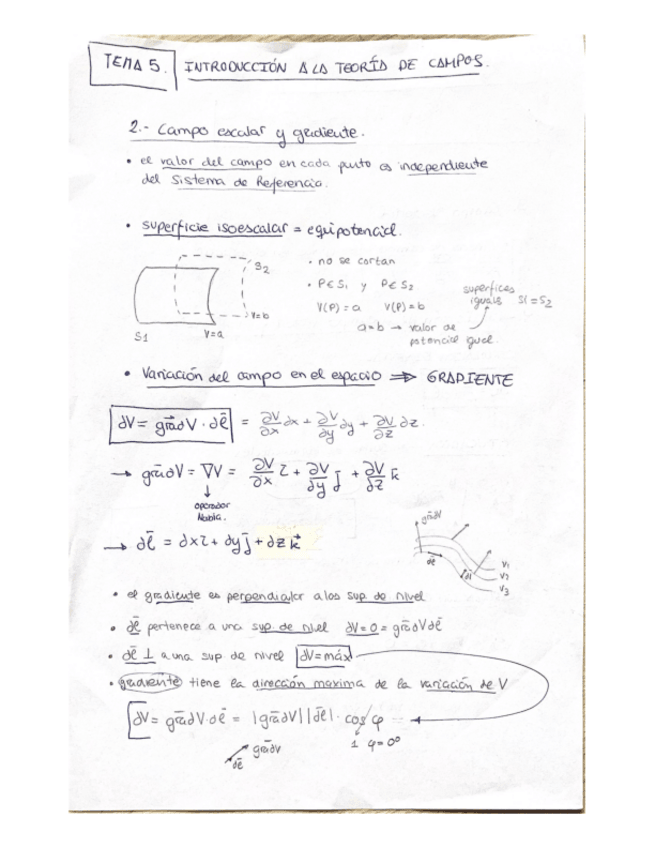 TEMA 5. INTRODUCCIÓN A LA TEORÍA DE CAMPOS.
2.- Campo escalar y gradiente.
• el valor del campo en cada punto es independiente
del Sistema de Referencia.
• superficie isoescalar = equipotencial.
S2
V=b
S1
V=a
• no se cortan
• P∈S1 y P∈S2
V(P)=a V(P)=b
a=b → valor de
potencial igual.
superfices
iguals S1=S2
• Variación del campo en el espacio ⇒ GRADIENTE
dV = grad V · dl̄ = ∂V/∂x dx + ∂V/∂y dy + ∂V/∂z dz.
→ grad V = ∇V = ∂V/∂x ī + ∂V/∂y j̄ + ∂V/∂z k̄
↓
operador
Nabla.
→ dl̄ = dx ī + dy j̄ + dz k̄
grad V
dl̄
dl̄
V1
V2
V3
• el gradiente es perpendicular a los sup. de nivel
• dl̄ pertenece a una sup. de nivel dV=0= grad V dl̄
• dl̄ ⊥ a una sup. de nivel dV=máx
• gradiente tiene la dirección maxima de la variación de V
dV = grad V · dl̄ = |grad V| |dl̄| · cos φ
1 φ=0º
grad V
dl̄